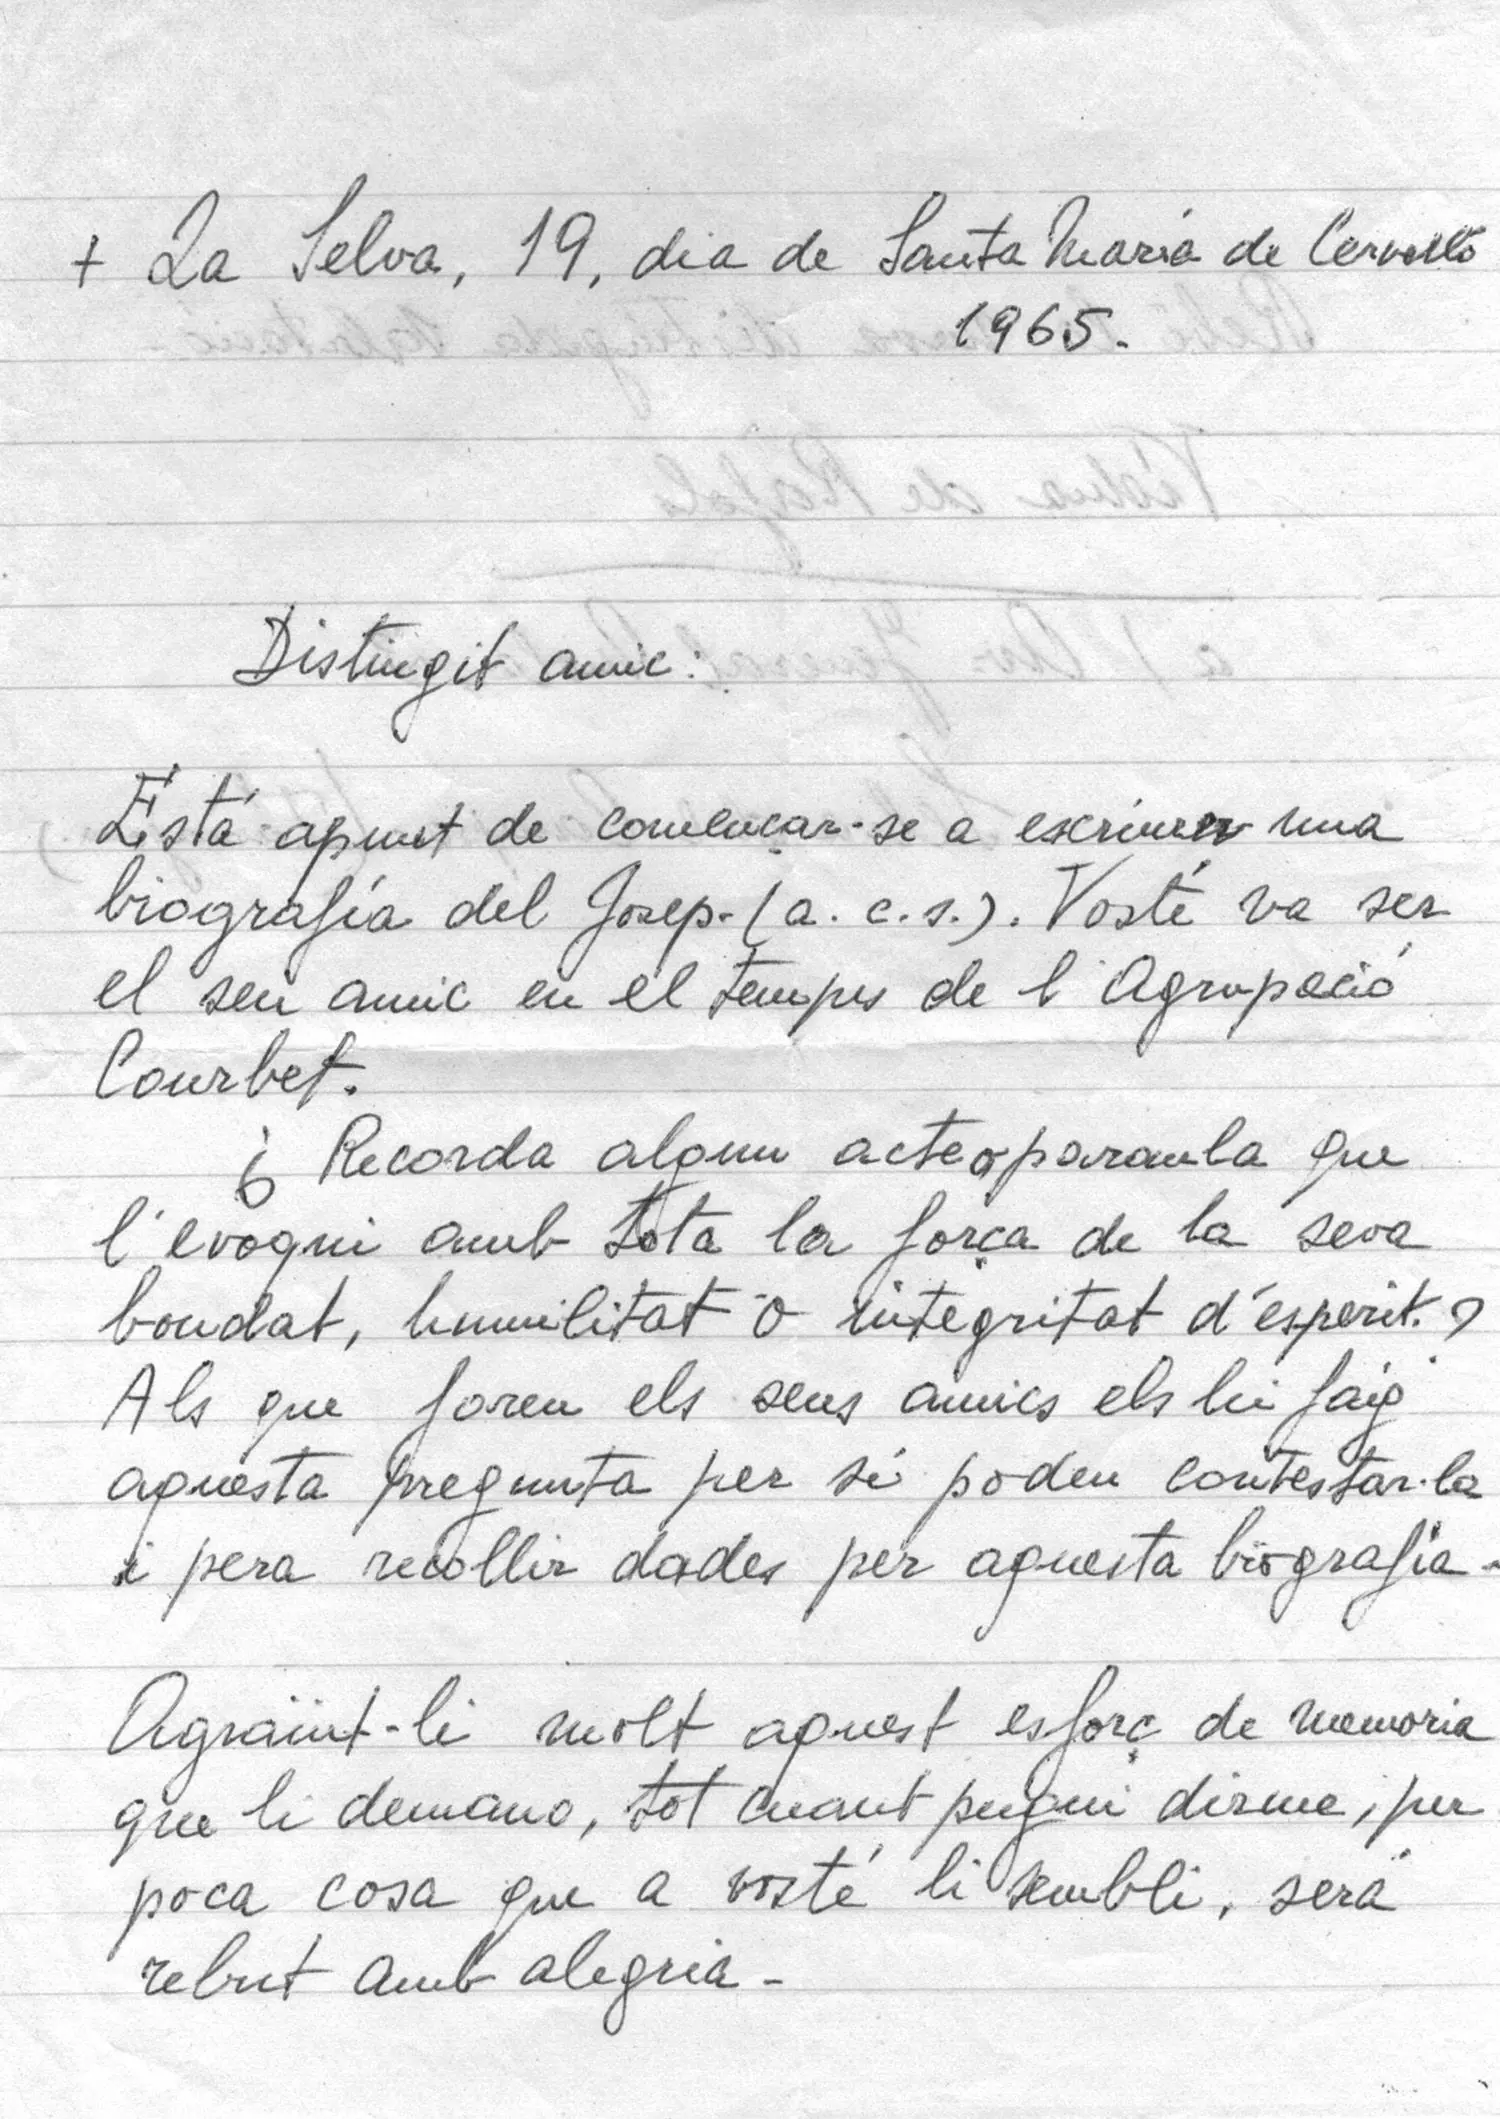 + La Selva, 19, dia de Santa María de Cervelló
1965.
Distingit amic:
Está apunt de començar-se a escriurer una
biografía del Josep. (a. c. s.). Vosté va ser
el seu amic en el temps de l'Agrupació
Courbet.
¿ Recorda algun acte o paraula que
l'evoqui amb tota la força de la seva
bondat, humilitat o integritat d'esperit.?
Als que foren els seus amics els hi faig
aquesta pregunta per si poden contestar-la
i pera recollir dades per aquesta biografía -
Agraint-li molt aquest esforç de memoria
que li demano, tot cuant pugui dirme, per
poca cosa que a vosté li sembli, será
rebut amb alegria -
Vidua de Ràfols